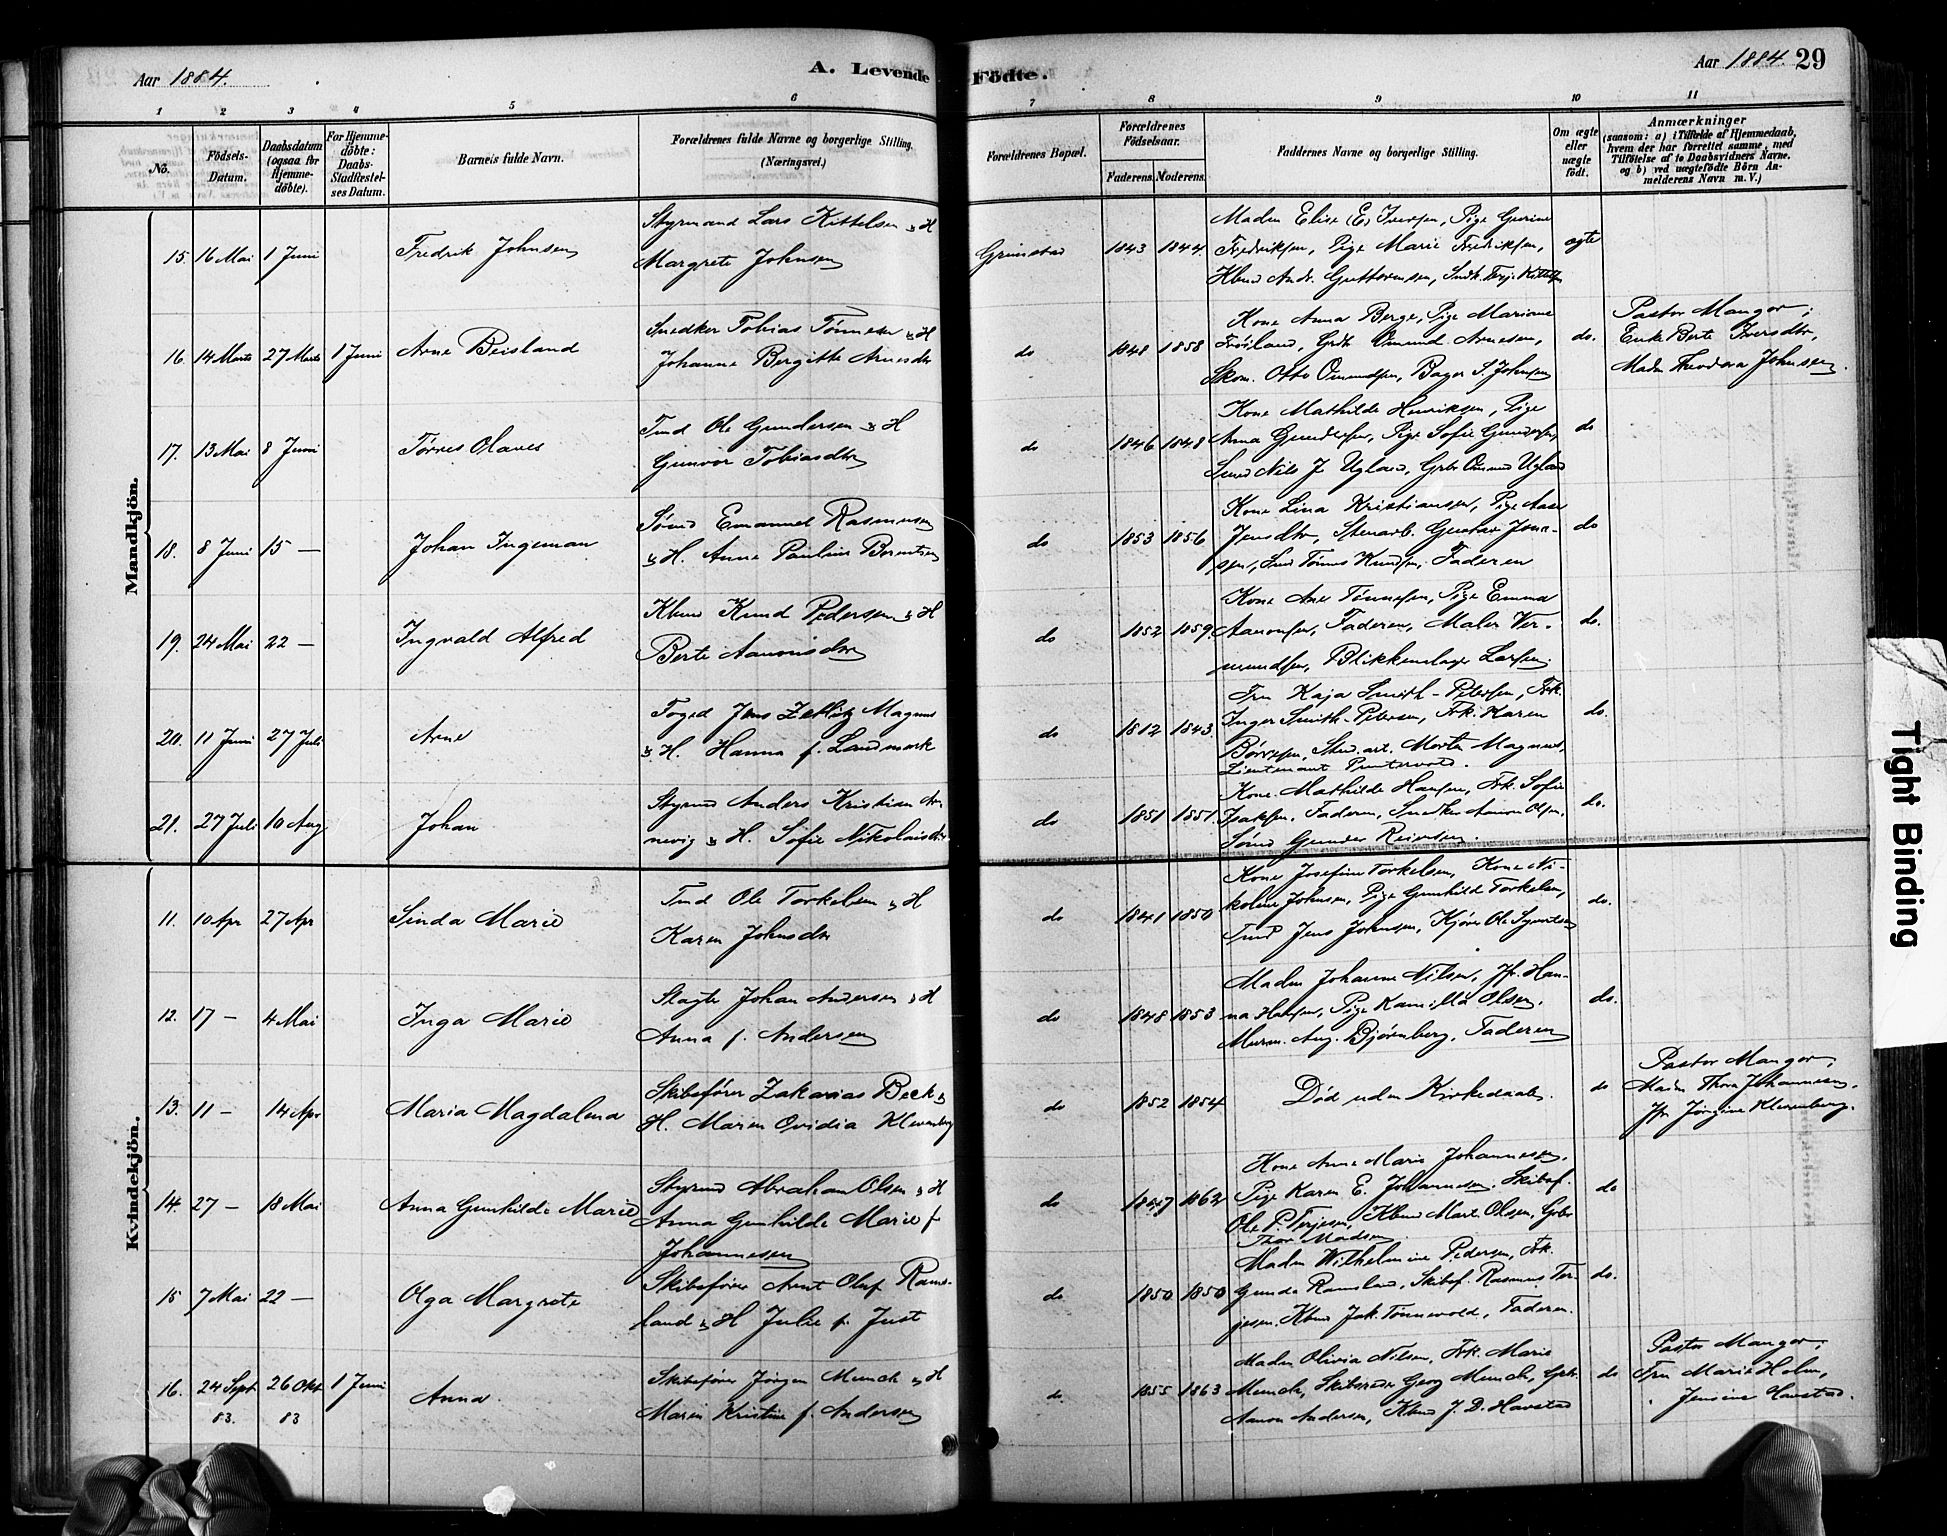 Aar 1884.
A. Levende Födte.
Aar 1884. 29
1 2 3 4 5 6 7 8 9 10 11
No.
Födsels-Datum.
Daabsdatum (ogsaa for Hjemme-döbte).
For Hjemme-döbte: Daabs-Stadfæstel-ses Datum.
Barnets fulde Navn.
Forældrenes fulde Navne og borgerlige Stilling. (Næringsvei.)
Forældrenes Bopæl.
Forældrenes Födselsaar.
Faderens. Moderens.
Faddernes Navne og borgerlige Stilling.
Om ægte eller uægte födt.
Anmærkninger
(saasom: a) i Tilfælde af Hjemmedaab, hvem der har forrettet samme, med Tilföielse af to Daabsvidners Navne. og b) ved uægtefödte Börn Anmelderens Navn m. V.)
Mandkjön.
15. 16 Mai 1 Juni Fredrik Johnsen
Styrmand Lars Kittelsen & H
Margrete Johnsen
Grimstad 1843 1844.
Madm Elise E. Iversen, Pige Gurine
Fredriksen, Pige Marie Fredriksen,
Kbmd Andr. Guttormsen, Snedk. Terje Kittelsen
ægte
16. 14 Marts 27 Marts 1 Juni Arne Beisland
Snedker Tobias Tønnesen & H
Johanne Bergitte Arnesdtr
do 1848 1858
Kone Anna Berge, Pige Mariane
Frøiland, Omund Arnesen,
Skom. Otto Omundsen, Bager S. Johnsen
do.
Pastor Mangor;
Enke Berte Iversdtr,
Madm Theodora Johnsen.
17. 13 Mai 8 Juni Tørres Olaves
Tmd Ole Gundersen & H
Gunvor Tobiasdtr
do 1846 1848
Kone Mathilde Henriksen, Pige
Anna Gundersen, Pige Sofie Gundersen,
Nils J. Ugland, Omund Ugland
do
18. 8 Juni 15 — Johan Ingeman
Sømd Emanuel Rasmusen
& H. Anne Pauline Berntsen
do 1853 1856
Kone Lina Kristiansen, Pige Aase
Jensdtr, Stenarb. Gustav Jen-
sen, Tønnes Knudsen, Faderen
do
19. 24 Mai 22 — Ingvald Alfred
Kbmd Knud Pedersen & H
Berte Aanonsdtr
do 1852 1859.
Kone Ane Tønnesen, Pige Emma
Aanonsen, Faderen, Maler Ver-
mundsen, Blikkenslager Larsen.
do.
20. 11 Juni 27 Juli Arne
Foged Jens Zetlitz Magnus
& H. Hanna f. Landmark
do 1812 1843.
Fru Kaja Smith-Petersen, Frk.
Inger Smith-Petersen, Frk. Karen
Børresen, Stud. art. Morten Magnus,
Lieutenant Puntervold.
do.
21. 27 Juli 10 Aug Johan
Styrmd Anders Kristian Ar-
nevig & H. Sofie Nikolaisdtr
do 1851 1851
Kone Mathilde Hansen, Frk. Sofie
Isaksen, Faderen, Snedker Aanon Olsen,
Sømd Gunder Reiersen.
do.
Kvindekjön.
11. 10 Apr 27 Apr Sinda Marie
Tmd Ole Torkelsen & H
Karen Johnsdtr
do 1841 1850
Kone Josefine Torkelsen, Kone Ni-
koline Johnsen, Pige Gunhild Torkelsen,
Tmd Jens Johnsen, Kjører Ole Syvertsen
do.
12. 17 — 4 Mai Inga Marie
Slagter Johan Andersen & H
Anna f. Andersen
do 1848 1853
Madm Johanne Nilsen, Jfr. Han-
na Hansen, Pige Kamilla Olsen,
Murm. Aug. Bjørnberg, Faderen
do.
13. 11 — 14 Apr Maria Magdalena
Skibsfører Zakarias Beck &
H. Maren Ovidia Klevenberg
do 1852 1854
Død uden Kirkedaab.
do
Pastor Mangor;
Madm Thora Johannesen.
Jfr Jørgine Klevenberg.
14. 27 — 18 Mai Anna Gunhilde Marie
Styrmd Abraham Olsen & H
Anna Gunhilde Marie f
Johannessen
do 1847 1862
Kone Anne Marie Johannesen,
Pige Karen E. Johannesen, Skibsf.
Ole P. Terjesen, Kbmd Mart. Olsen, Grbr
Thor Madsen.
do
15 7 Mai 22 — Olga Margrete
Skibsfører Arnt Oluf Rams-
land & H Julie f. Just
do 1850. 1850
Madm Wilhelmine Pedersen, Frk.
Gunda Ramsland, Skibsf. Rasmus Ter-
jesen, Kbmd Jak. Tønnevold, Faderen.
do.
16. 24 Sept. 83. 26 Okt 83 1 Juni Anna.
Skibsfører Jørgen Munch & H
Maren Kristine f. Andersen
do. 1855 1863
Madm Olivia Nilsen, Frk. Marie
Munch, Skibsreder Georg Munch, Grbr.
Aanon Andersen, Kbmd J. D. Havstad
do
Pastor Mangor;
Fru Marie Holm,
Jensine Havstad.
Tight Binding